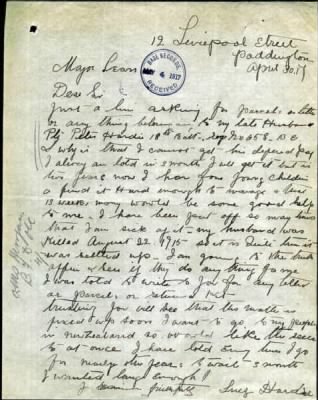 12 Liverpool Street
Paddington
April 30. 17
BASE RECORDS
MAY 4 1917
RECEIVED
Major Lean
Dear Sir
Just a line asking for parcels or letter
or any thing belonging to my late Husband
Pte Peter Hardie 18th Batt.
& why is it that I cannot get his deferred Pay
I always am told in 3 month I will get it but it is
this since now I have four young children
& find it Hard enough to manage & their
money would be some good help
to me. I have been put off so many times
that I am sick of it. my husband was
Killed August 22. 1915 so it is time it was
settled up. I am going to the
office & see if they do any thing for me
I was told to write to you for any letters
or parcels or
trusting you will see that this matter is
fixed up soon I want to go to my people
in New Zealand so would like this seen
to at once I have told every time I go
for nearly two years to wait 3 month
I wanted long enough
I remain faithfully
Inez Hardie